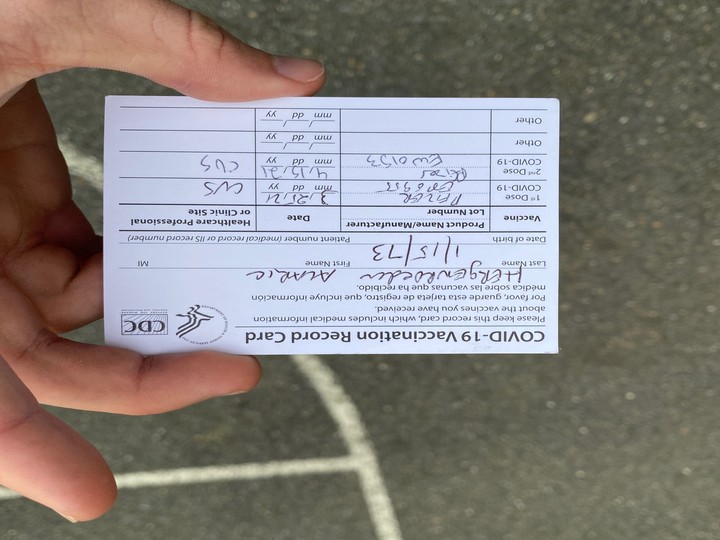 COVID-19 Vaccination Record Card
CDC
Please keep this record card, which includes medical information
about the vaccines you have received.
Por favor, guarde esta tarjeta de registro, que incluye información
médica sobre las vacunas que ha recibido.
Last Name First Name MI
1/15/73
Date of birth Patient number (medical record or IIS record number)
Vaccine Product Name/Manufacturer Lot Number Date Healthcare Professional or Clinic Site
1st Dose COVID-19 PFIZER 3/25/21 mm dd yy CVS
2nd Dose COVID-19 EW0153 4/15/21 mm dd yy CVS
Other mm dd yy
Other mm dd yy